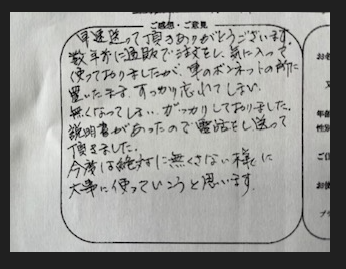 ご感想・ご意見
早速送って頂きありがとうございます。
数年前に通販で注文をし、気に入って
使っておりましたが、車のボンネットの所に
置いたまま、すっかり忘れてしまい、
無くなってしまい、ガッカリしておりました。
説明書があったので電話をし送って
頂きました。
今後は絶対に無くさない様に
大事に使っていこうと思います。